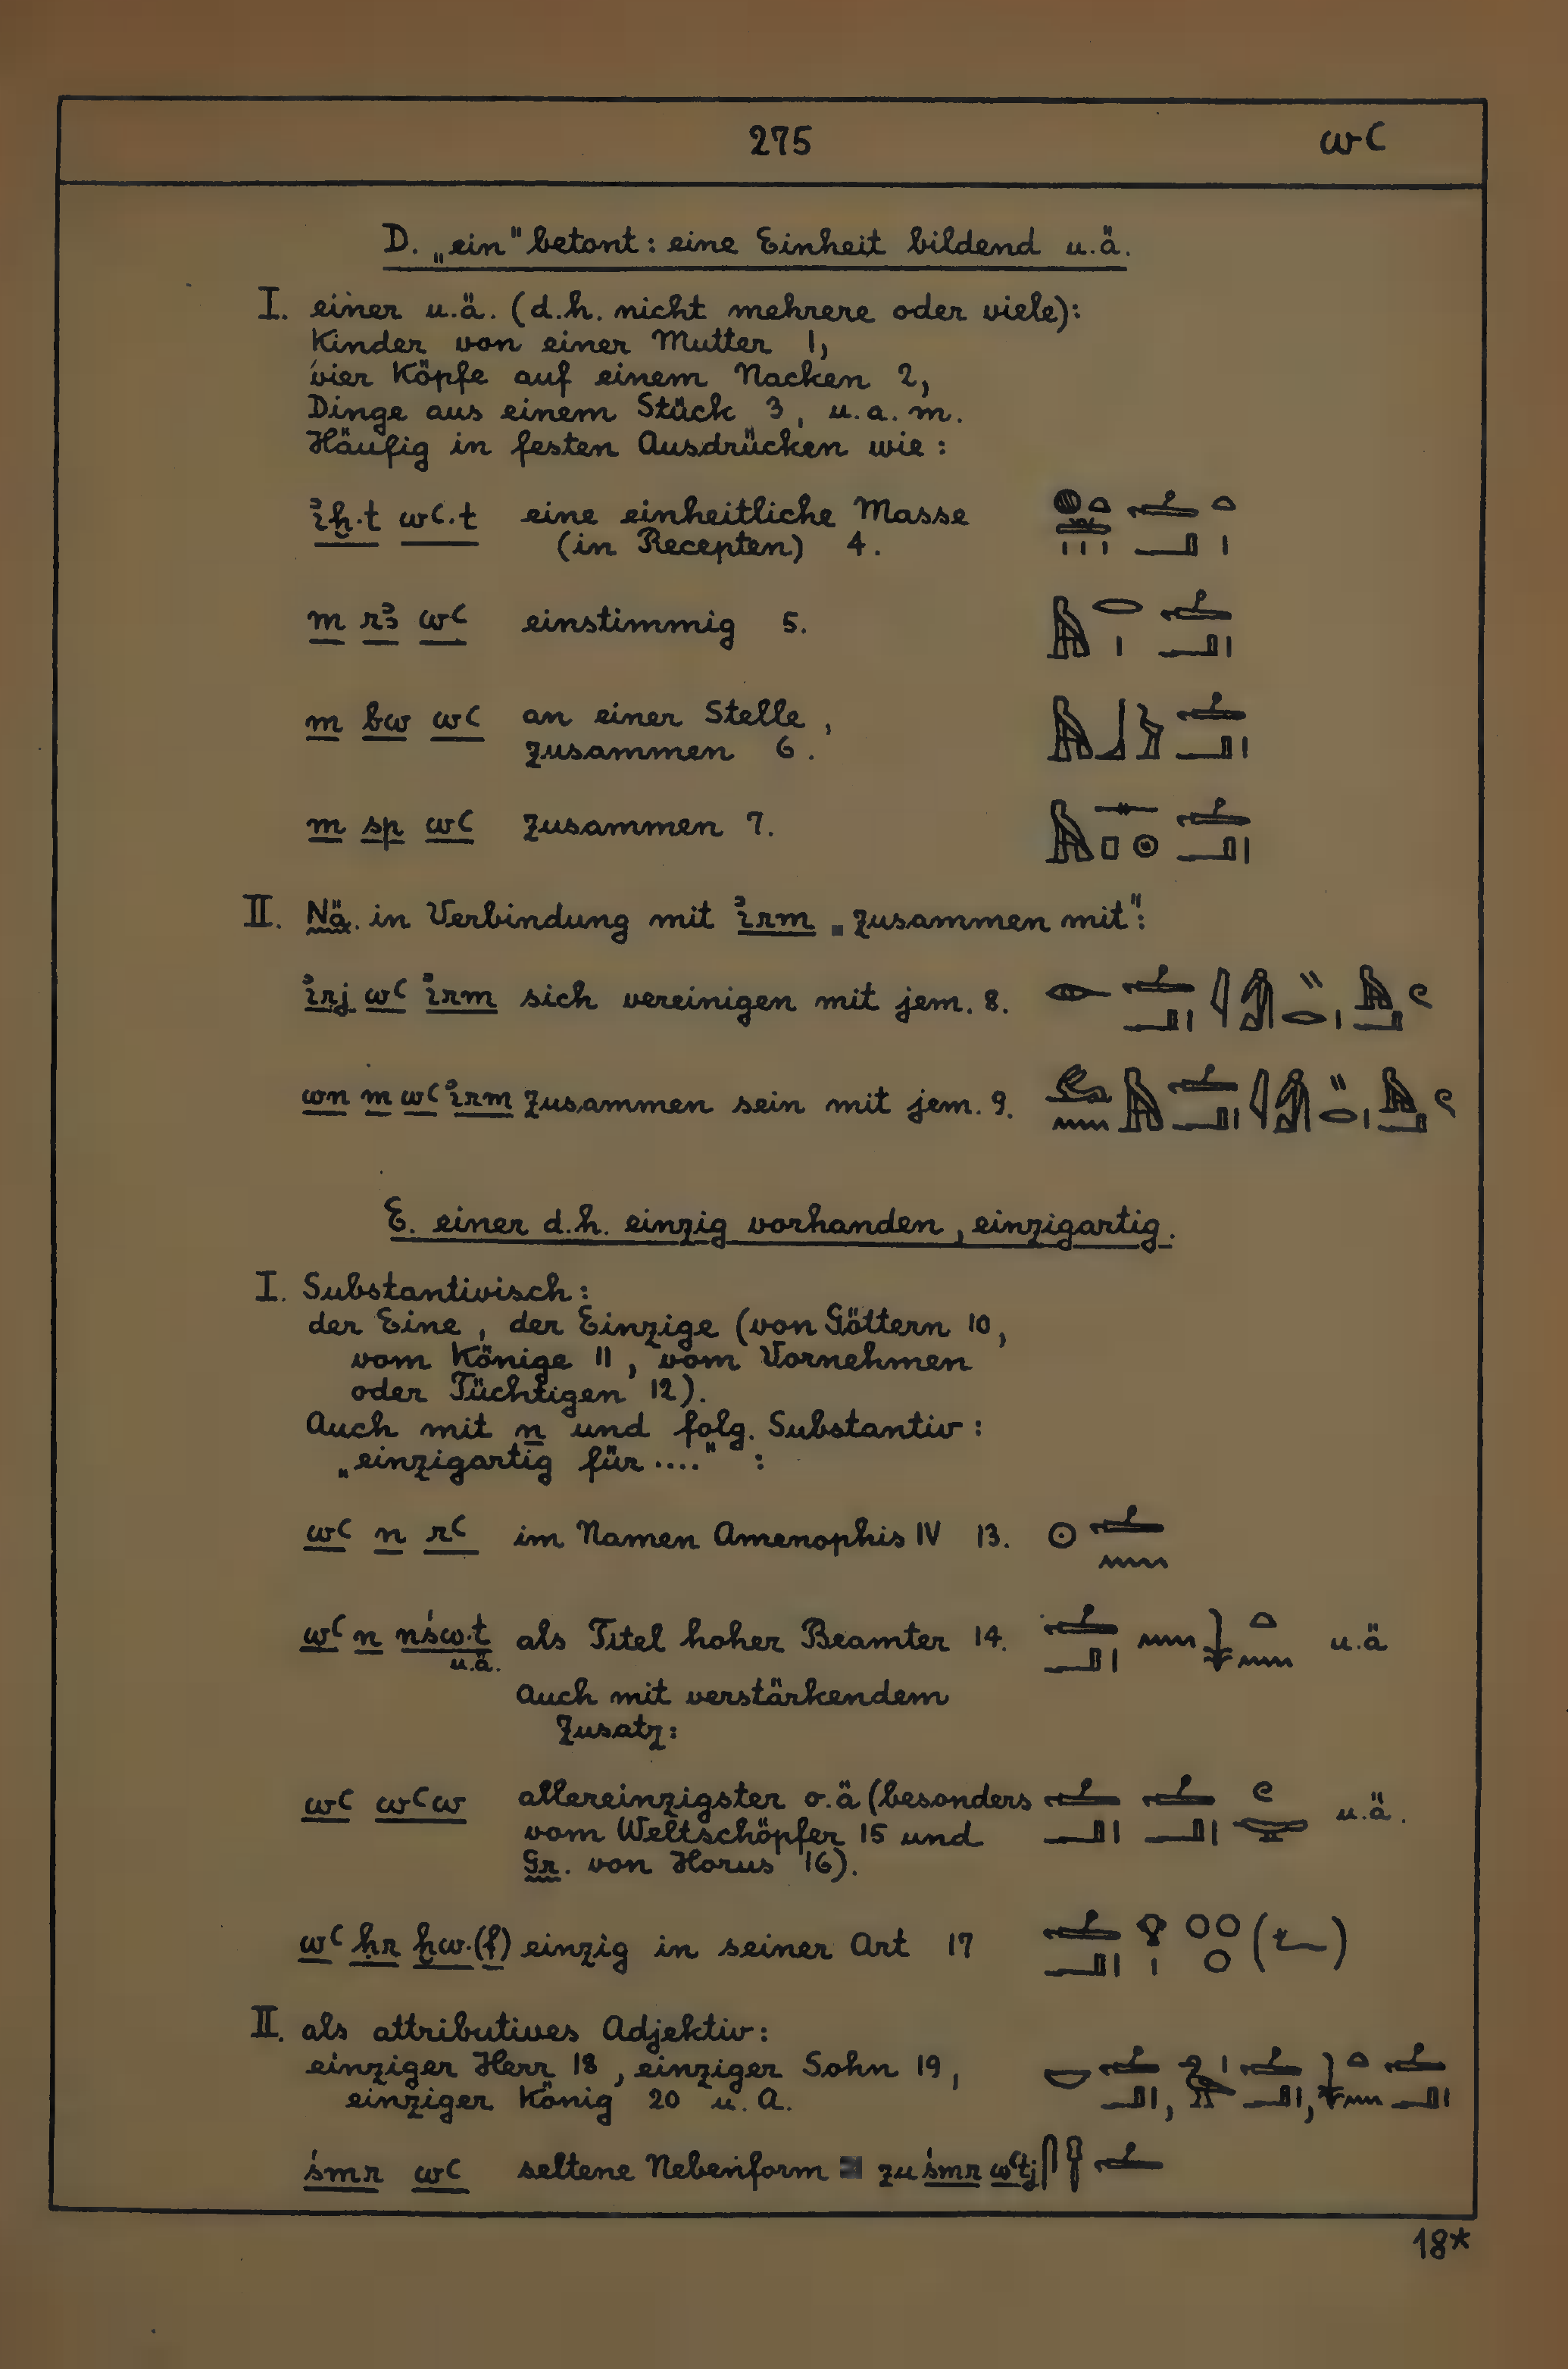 275 wꜥ
D. „ein" betont: eine Einheit bildend u.ä.
I. einer u.ä. (d.h. nicht mehrere oder viele):
Kinder von einer Mutter 1,
vier Köpfe auf einem Nacken 2,
Dinge aus einem Stück 3, u.a.m.
Häufig in festen Ausdrücken wie:
iḫ·t wꜥ·t eine einheitliche Masse
(in Recepten) 4.
m rꜣ wꜥ einstimmig 5.
m bw wꜥ an einer Stelle,
zusammen 6.
m sp wꜥ zusammen 7.
II. Nä. in Verbindung mit irm „zusammen mit":
irj wꜥ irm sich vereinigen mit jem. 8.
wn m wꜥ irm zusammen sein mit jem. 9.
E. einer d.h. einzig vorhanden, einzigartig.
I. Substantivisch:
der Eine, der Einzige (von Göttern 10,
vom Könige 11, vom Vornehmen
oder Tüchtigen 12).
Auch mit n und folg. Substantiv:
„einzigartig für...." :
wꜥ n rꜥ im Namen Amenophis IV 13.
wꜥ n nśw·t als Titel hoher Beamter 14. u.ä
u.ä.
Auch mit verstärkendem
Zusatz:
wꜥ wꜥw allereinzigster o.ä (besonders u.ä.
vom Weltschöpfer 15 und
Gr. von Horus 16).
wꜥ ḥr ḫw·(f) einzig in seiner Art 17
II. als attributives Adjektiv:
einziger Herr 18, einziger Sohn 19,
einziger König 20 u. A.
śmr wꜥ seltene Nebenform zu śmr wꜥtj
18*